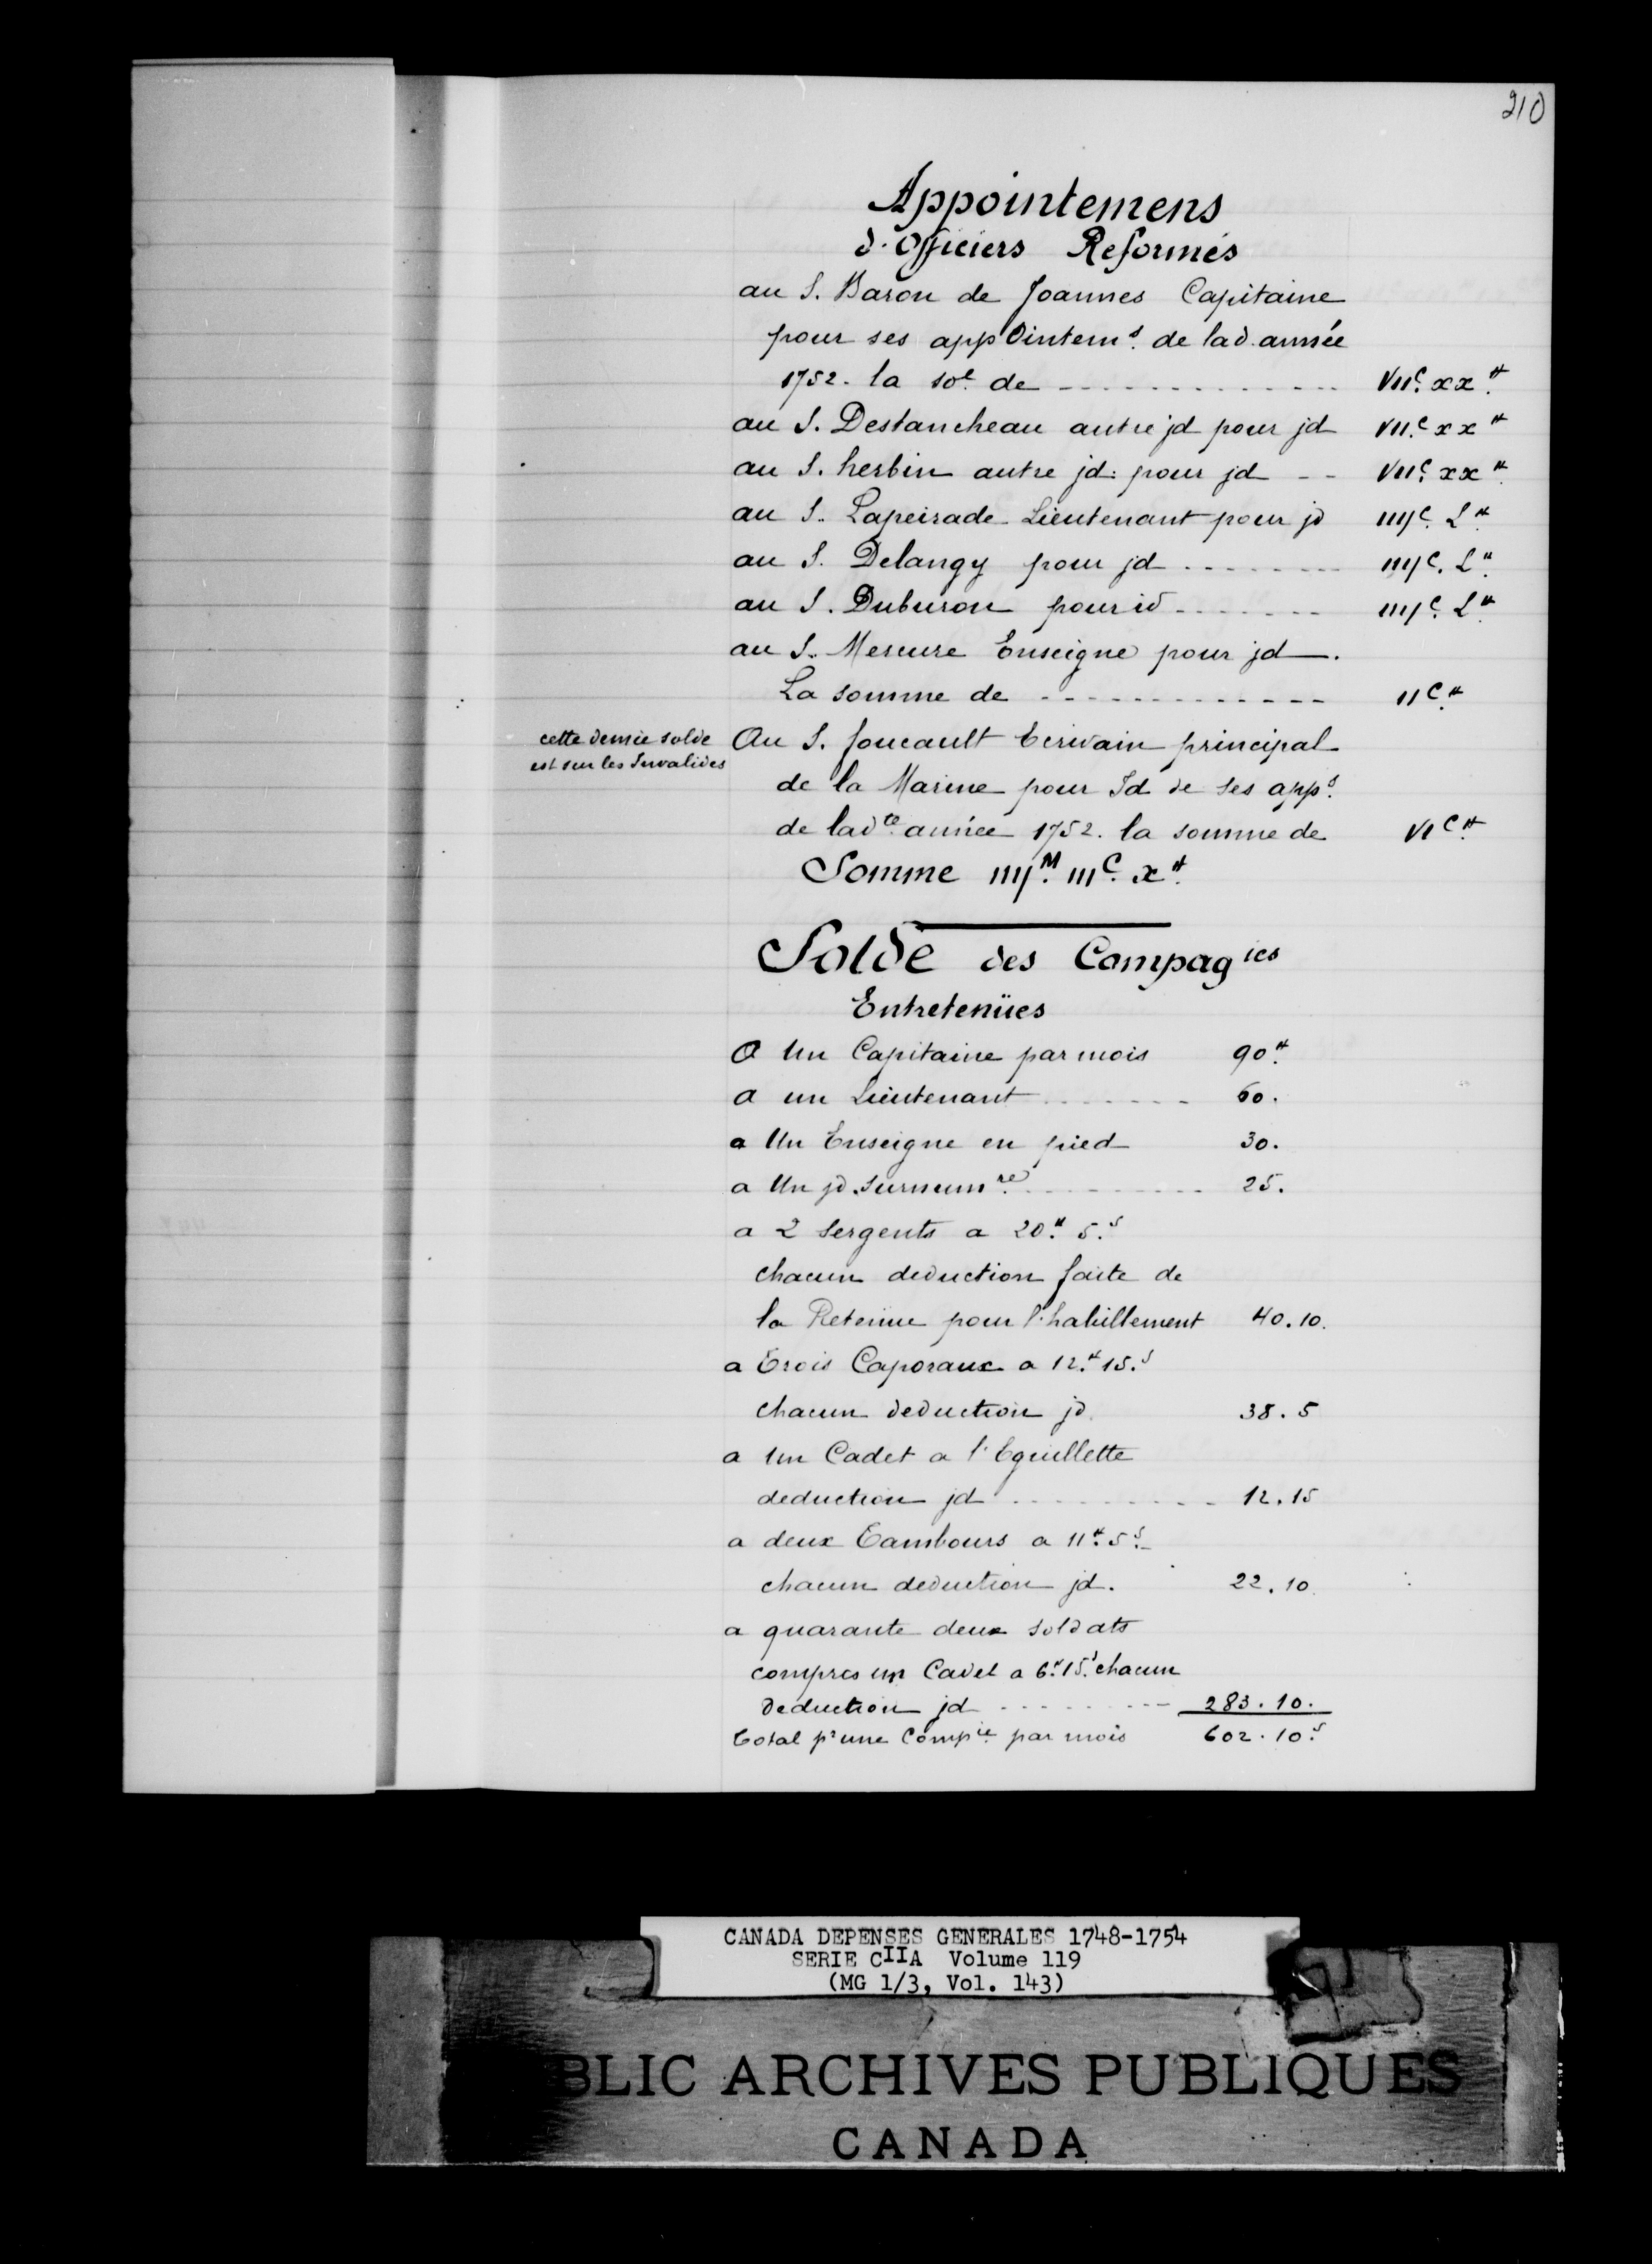 210
Appointemens
d'Officiers Reformés
au S. Baron de Joannes Capitaine
pour ses appointem.s de lad. année
1752. la so.e de - - - - - VII.C xx.#
au S. Destancheau autre jd pour jd VII.C xx #
au S. herbin autre jd. pour jd - - VII.C xx #
au S. Lapeirade Lieutenant pour jd IIIJ C. L #
au S. Delangy pour jd - - - - - IIIJ C. L #
au S. Duburon pour id - - - - - IIIJ C. L #
au S. Mercure Enseigne pour jd.
La somme de - - - - - II C #
cette demie solde
est sur les Invalides
Au S. foucault Ecrivain principal
de la Marine pour Id de ses app.s
de lad.te année 1752. la somme de VI C #
Somme IIIJ.M III C. x #
Solde des Compagies
Entretenües
A Un Capitaine par mois 90 #
a un Lieutenant - - - - - 60.
a Un Enseigne en pied 30.
a Un jd. surnum.re - - - - - 25.
a 2 Sergents a 20.# 5.s
chacun deduction faite de
la Retenue pour l'habillement 40.10.
a Trois Caporaux a 12.# 15.s
chacun deduction jd 38.5
a Un Cadet a l'Eguillette
deduction jd - - - - - 12.15
a deux Tambours a 11.# 5.s
chacun deduction jd. 22.10.
a quarante deux soldats
compris un Cadet a 6.# 15.s chacun
Deduction jd - - - - - 283.10.
Total pr une Comp.ie par mois 602.10.s
CANADA DEPENSES GENERALES 1748-1754
SERIE CIIA Volume 119
(MG 1/3, Vol. 143)
BLIC ARCHIVES PUBLIQUES
CANADA